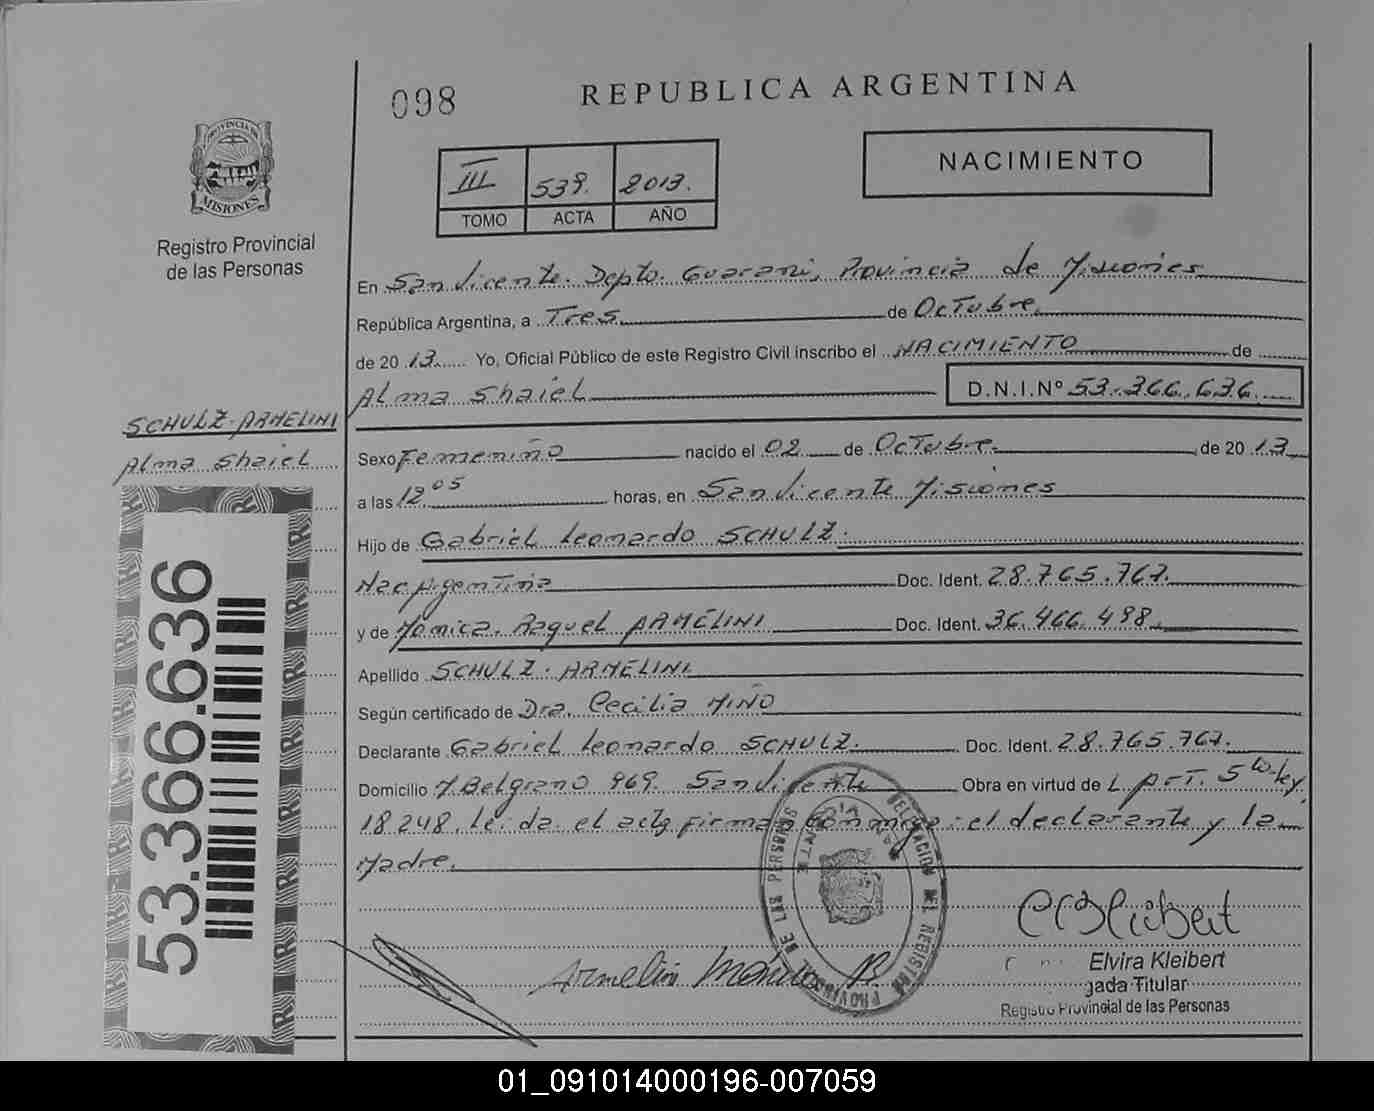 098
REPUBLICA ARGENTINA
NACIMIENTO
III 539. 2013.
TOMO ACTA AÑO
PROVINCIA DE
MISIONES
Registro Provincial
de las Personas
En San Vicente. Depto. Guarani, Provincia de Misiones
República Argentina, a Tres de Octubre.
de 20 13 Yo, Oficial Público de este Registro Civil inscribo el NACIMIENTO de
Alma Shaiel D.N.I.Nº 53.366.636
SCHULZ-ARMELINI
Alma Shaiel
Sexo Femenino nacido el 02 de Octubre. de 20 13
a las 12 05 horas, en San Vicente Misiones
Hijo de Gabriel Leonardo SCHULZ.
Nac Argentina Doc. Ident. 28.765.767.
y de Monica. Raquel ARMELINI Doc. Ident. 36.466.498.
Apellido SCHULZ. ARMELINI
Según certificado de Dra. Cecilia MIÑO
Declarante Gabriel Leonardo SCHULZ. Doc. Ident. 28.765.767.
Domicilio M Belgrano 969. San Vicente Obra en virtud de L Art. 5to ley
18.248. Leida el acta firman conmigo: el declarante y la
Madre.
53.366.636
DELEGACION DEL REGISTRO PROVINCIAL DE LAS PERSONAS
Armelini Monica R.
Elvira Kleibert
gada Titular
Registro Provincial de las Personas
01_091014000196-007059